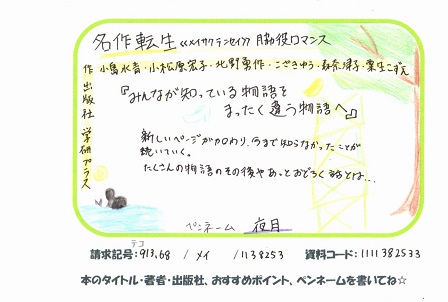 名作転生≪メイサクテンセイ≫ 脇役ロマンス
作 小島水青・小松原宏子・北野勇作・こざきゆう・森奈津子・粟生こずえ
出版社 学研プラス
『みんなが知っている物語を
まったく違う物語へ』
新しいページが加わり、今まで知らなかったことが
続いていく。
たくさんの物語のその後やあっとおどろく話とは…
ペンネーム 夜月
テコ
請求記号:913.68 / メイ /1138253 資料コード:1111382533
本のタイトル・著者・出版社、おすすめポイント、ペンネームを書いてね☆